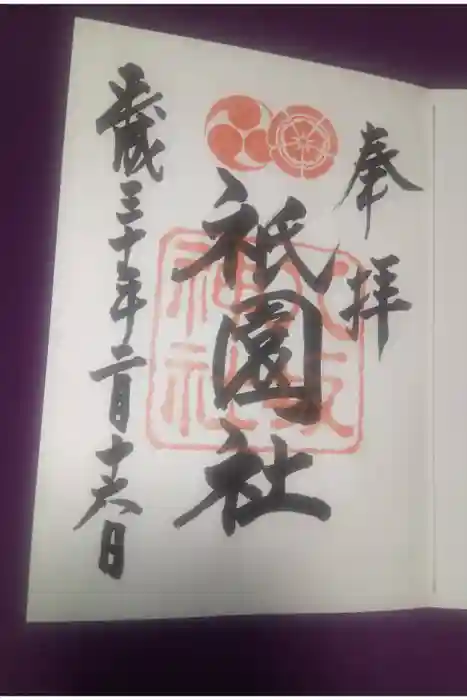 奉拝
八坂
神社
祇園社
平成三十年二月十六日